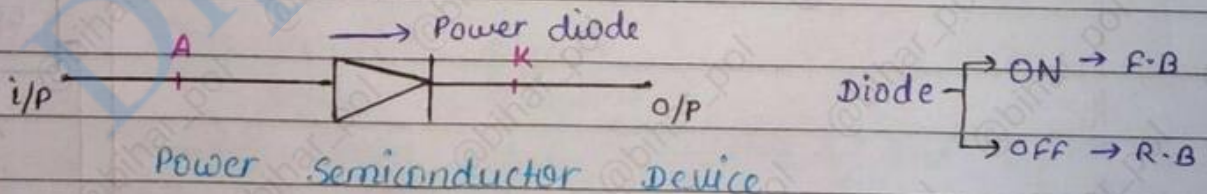 → Power diode
A
K
i/p
O/P
Diode
→ ON → F·B
→ OFF → R·B
Power Semiconductor Device
@bihar_pol